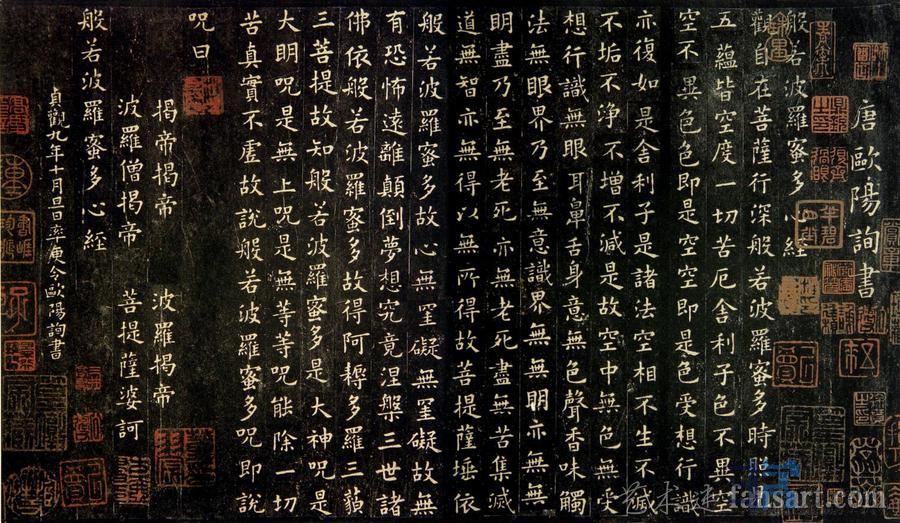 唐歐陽詢書
般若波羅蜜多心經
觀自在菩薩行深般若波羅蜜多時照見
五蘊皆空度一切苦厄舍利子色不異空
空不異色色即是空空即是色受想行識
亦復如是舍利子是諸法空相不生不滅
不垢不淨不增不減是故空中無色無受
想行識無眼耳鼻舌身意無色聲香味觸
法無眼界乃至無意識界無無明亦無無
明盡乃至無老死亦無老死盡無苦集滅
道無智亦無得以無所得故菩提薩埵依
般若波羅蜜多故心無罣礙無罣礙故無
有恐怖遠離顛倒夢想究竟涅槃三世諸
佛依般若波羅蜜多故得阿耨多羅三藐
三菩提故知般若波羅蜜多是大神呪是
大明呪是無上呪是無等等呪能除一切
苦真實不虛故說般若波羅蜜多呪即說
呪曰
揭帝揭帝 波羅揭帝
波羅僧揭帝 菩提薩婆訶
般若波羅蜜多心經
貞觀九年十月旦日率更令歐陽詢書
fansart.com